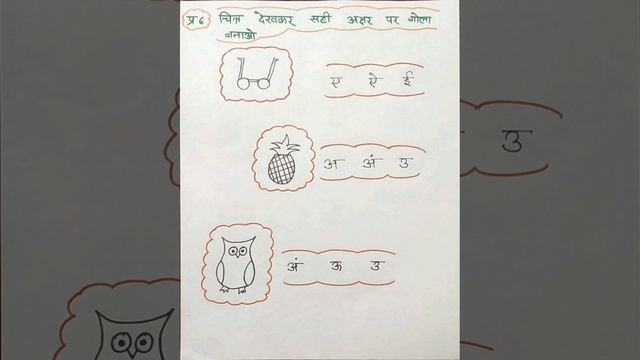 प्र६ चित्र देखकर सही अक्षर पर गोला
बनाओ
ए ऐ ई
अ अं उ
अं ऊ उ
उ